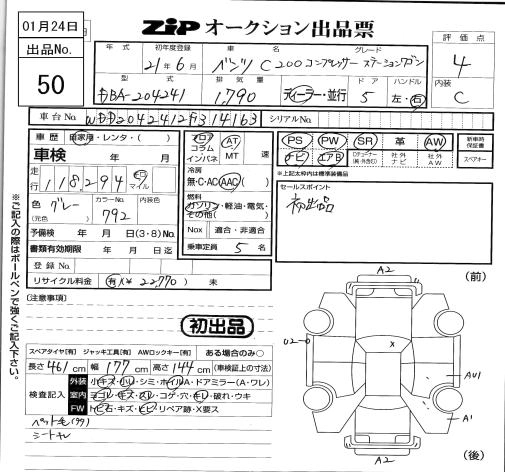 01月24日
出品No.
50
ZiP オークション出品票
評価点
4
内装
C
年式 初年度登録 車名 グレード
21年6月 ベンツ C200コンプレッサー ステーションワゴン
型式 排気量 ドア ハンドル
DBA-204241 1,790 ディーラー・並行 5 左・右
車台No. WDD2042412F314163 シリアルNo.
車歴 自家用・レンタ・( )
フロア AT
コラム
インパネ MT 速
PS PW SR 革 AW
ナビ エアB
社外ナビ 社外AW
新車時保証書
スペアキー
*上記太枠内は標準装備品
車検 年 月
走行 118,294 km マイル
冷房
無・C・AC AAC
セールスポイント
初出品
色 グレー カラーNo. 792 内装色
(元色)
燃料
ガソリン・軽油・電気・
その他( )
予備検 年 月 日(3・8)No.
Nox 適合・非適合
書類有効期限 年 月 日迄
乗車定員 5 名
登録No.
リサイクル料金 有(¥22,770) 未
(注意事項)
初出品
スペアタイヤ[有] ジャッキ工具[有] AWロックキー[有] ある場合のみ○
長さ461cm 幅177cm 高さ144cm (車検証上の寸法)
検査記入
外装 小キズ・小凹・シミ・ホイルA・ドアミラー(A・ワレ)
室内 ヨゴレ・キズ・スレ・コゲ・穴・キレ・破れ・ウキ
FW トビ石・キズ・ヒビ・リペア跡・X要ス
シートキレ
※ご記入の際はボールペンで強くご記入下さい。
(前)
A2
x
AU1
A1
A2
(後)